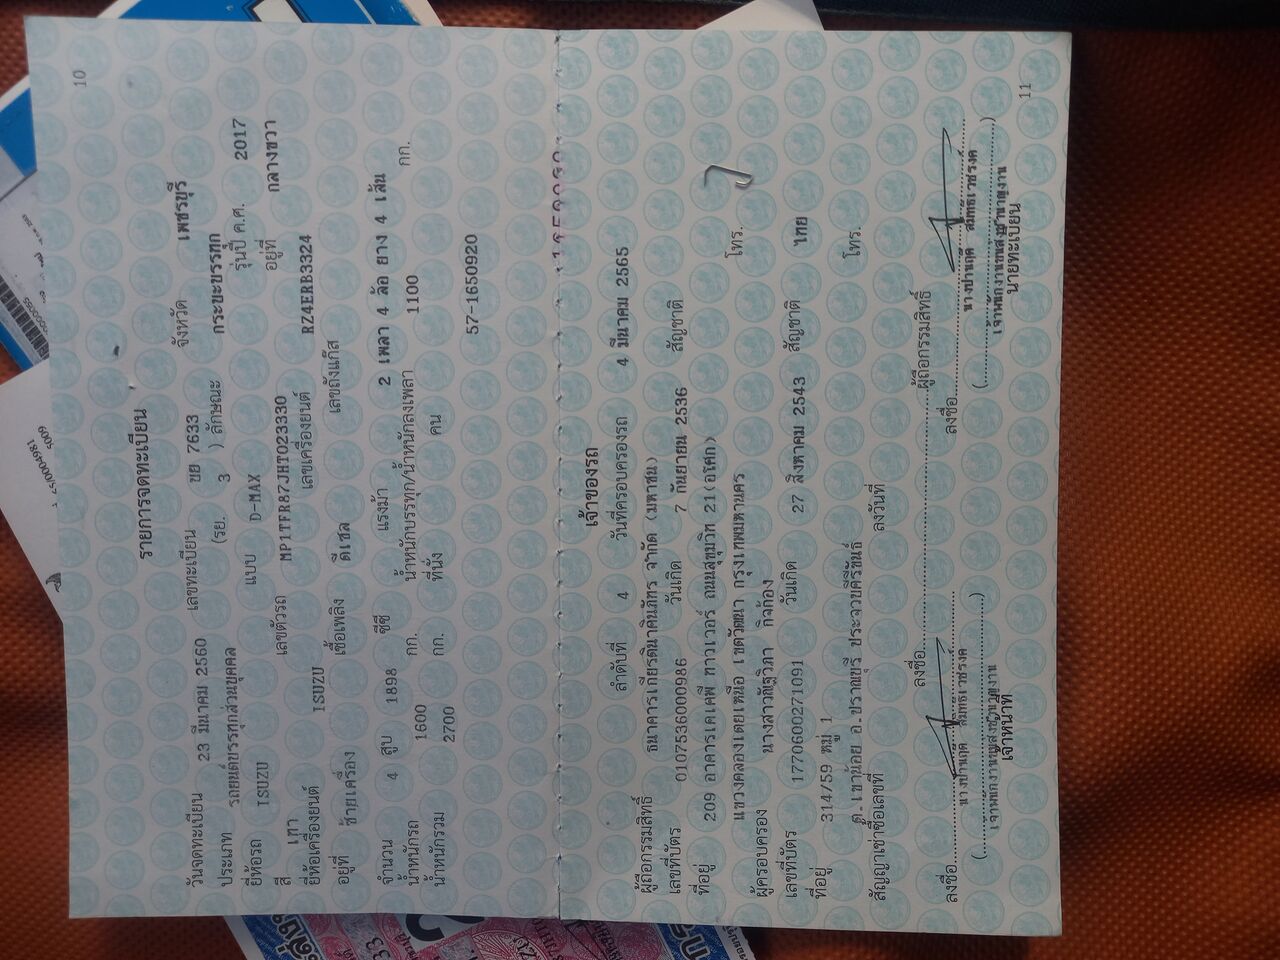 10
รายการจดทะเบียน
วันจดทะเบียน 23 มีนาคม 2560 เลขทะเบียน ขย 7633 จังหวัด เพชรบุรี
ประเภท รถยนต์บรรทุกส่วนบุคคล (รย. 3 ) ลักษณะ กระบะบรรทุก
ยี่ห้อรถ ISUZU แบบ D-MAX รุ่นปี ค.ศ. 2017
สี เทา เลขตัวรถ MP1TFR87JHT023330 อยู่ที่ กลางขวา
ยี่ห้อเครื่องยนต์ ISUZU เลขเครื่องยนต์ RZ4ERB3324
อยู่ที่ ซ้ายเครื่อง เชื้อเพลิง ดีเซล เลขถังแก๊ส
จำนวน 4 สูบ 1898 ซีซี แรงม้า 2 เพลา 4 ล้อ ยาง 4 เส้น
น้ำหนักรถ 1600 กก. น้ำหนักบรรทุก/น้ำหนักลงเพลา 1100 กก.
น้ำหนักรวม 2700 กก. ที่นั่ง คน
57-1650920
เจ้าของรถ
ลำดับที่ 4 วันที่ครอบครองรถ 4 มีนาคม 2565
ผู้ถือกรรมสิทธิ์ ธนาคารเกียรตินาคินภัทร จำกัด (มหาชน)
เลขที่บัตร 0107536000986 วันเกิด 7 กันยายน 2536 สัญชาติ
ที่อยู่ 209 อาคารเคเคพี ทาวเวอร์ ถนนสุขุมวิท 21(อโศก)
แขวงคลองเตยเหนือ เขตวัฒนา กรุงเทพมหานคร โทร.
ผู้ครอบครอง นางสาววัฒุวิภา กิจก้อง
เลขที่บัตร 1770600271091 วันเกิด 27 สิงหาคม 2543 สัญชาติ ไทย
ที่อยู่ 314/59 หมู่ 1
ต.เขาน้อย อ.ปราณบุรี ประจวบคีรีขันธ์ โทร.
สัญญาเช่าซื้อเลขที่ ลงวันที่
ลงชื่อ ผู้ถือกรรมสิทธิ์
ลงชื่อ ลงชื่อ
นางปานฤดี สมิทธิเวชรงค์ นางปานฤดี สมิทธิเวชรงค์
( ) ( )
เจ้าพนักงานขนส่งชำนาญงาน เจ้าพนักงานขนส่งชำนาญงาน
เจ้าหน้าที่ นายทะเบียน
11